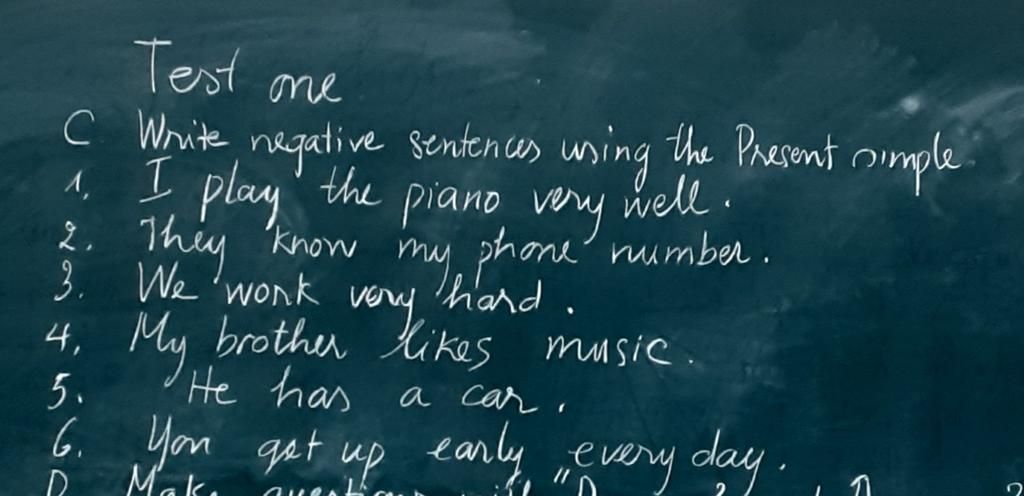 Test one
C Write negative sentences using the Present simple
1. I play the piano very well.
2. They know my phone number.
3. We work very hard.
4. My brother likes music.
5. He has a car.
6. You get up early every day.
D Make questions